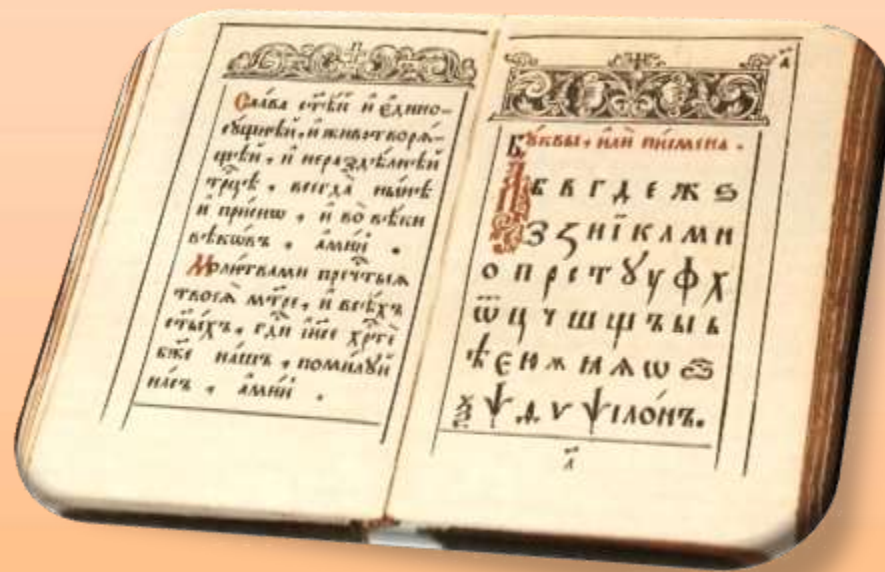 Сла́ва ст҃ѣ́й и҆ є҆дино-
су́щнѣй, и҆ животворѧ́-
щѣй, и҆ нераздѣ́лнѣй
трⷪ҇цѣ, всегда̀ ны́нѣ
и҆ при́снѡ, и҆ во̀ вѣ́ки
вѣкѡ́въ, а҆ми́нь.
Моли́твами пречⷭ҇тыѧ
твоеѧ̀ мт҃ре, и҆ всѣ́хъ
ст҃ы́хъ, гдⷭ҇и і҆и҃се хрⷭ҇тѐ
бж҃е на́шъ, поми́лꙋй
на́съ, а҆ми́нь.
Бꙋ́квы, и҆лѝ пи́смена.
А б в г д е ж ѕ
з ꙁ и ї к л м н
о п р с т ꙋ у ф х
ѿ ц ч ш щ ъ ы ь
ѣ є ю ѫ ꙗ ѧ ѡ
ѯ ѱ ѳ ѵ ѱіло́нъ.